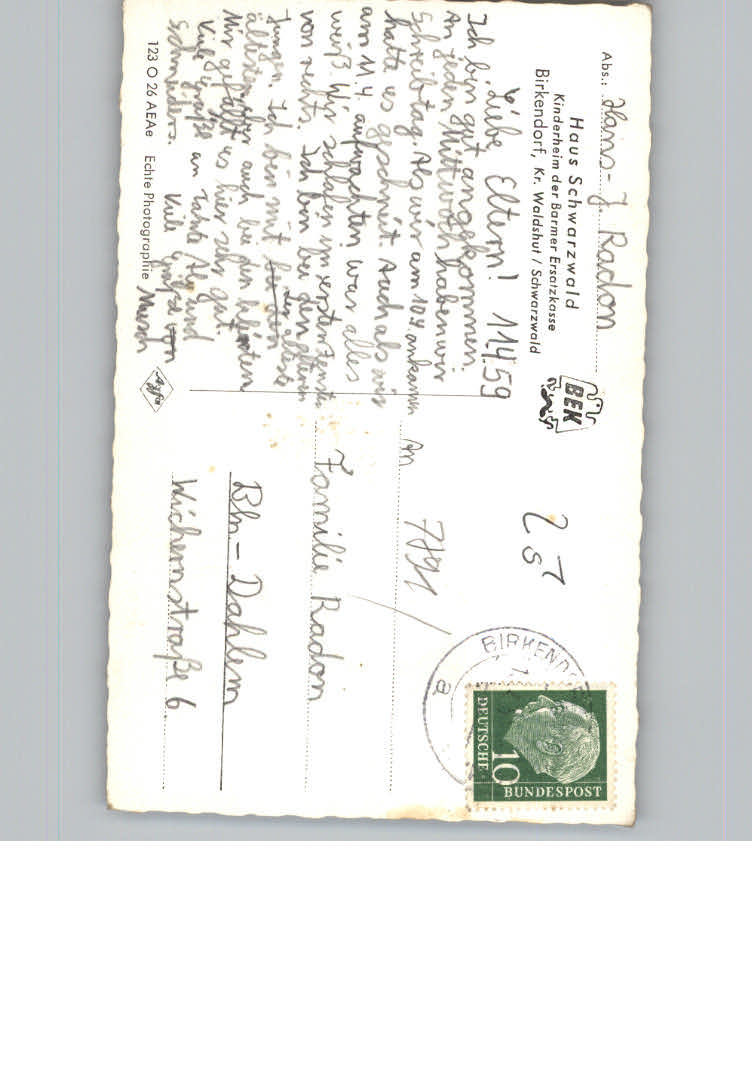 Abs.: Hans-J. Radon
Haus Schwarzwald
Kinderheim der Barmer Ersatzkasse
Birkendorf, Kr. Waldshut / Schwarzwald
BEK
Liebe Eltern! 11.4.59
Ich bin gut angekommen.
An jeden Mittwoch haben wir
Schreibtag. Als wir am 10.4. ankamen
hatte es geschneit. Auch als wir
am 11.4. aufwachten war alles
weiß. Wir schlafen im ersten Fenster
von rechts. Ich bin bei den älteren
Jungen. Ich bin mit der älteste
ältesten aber auch bei den
Mir gefällt es hier sehr gut.
Viele Grüße an Tante und
Schneiders. Viele Grüße von
Musch
123 O 26 AEAe Echte Photographie
Agfa
25
An
7891
Familie Radon
Bln.- Dahlem
Wichernstraße 6
BIRKENDORF
a
DEUTSCHE
10
BUNDESPOST